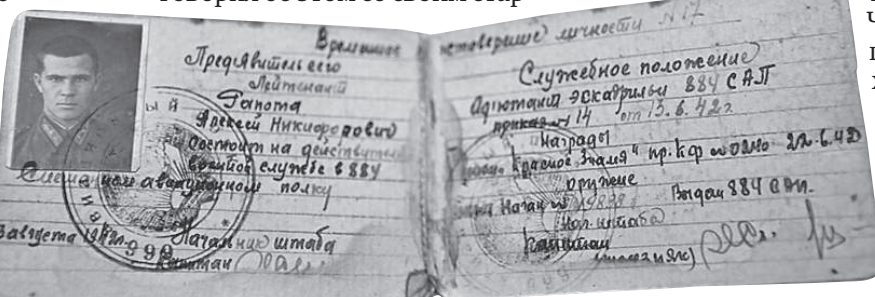 говорил об этом со своим стар
Временное удостоверение личности N 17
Предявитель сего
Лейтенант
Гапота
Алексей Никифорович
состоит на действительной
военной службе в 884
Смешанном авиационном полку
3 августа 1942г.
Начальник штаба
Капитан
999
Служебное положение
Адютант эскадрильи 884 САП
приказ N 14 от 13.6.42г.
Награды
"Красное Знамя" пр. КФ N 0240 22.6.42
оружие
Наган N
Выдан 884 САП.
Нач. штаба
Капитан